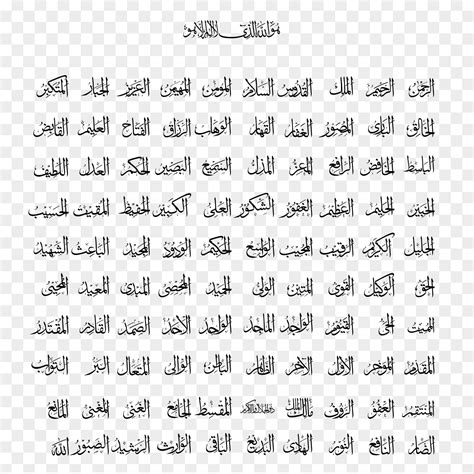 هو الله الذى لا اله الا هو
الرحمن الرحيم الملك القدوس السلام المؤمن المهيمن العزيز الجبار المتكبر
الخالق البارئ المصور الغفار القهار الوهاب الرزاق الفتاح العليم القابض
الباسط الخافض الرافع المعز المذل السميع البصير الحكم العدل اللطيف
الخبير الحليم العظيم الغفور الشكور العلى الكبير الحفيظ المقيت الحسيب
الجليل الكريم الرقيب المجيب الواسع الحكيم الودود المجيد الباعث الشهيد
الحق الوكيل القوى المتين الولى الحميد المحصى المبدى المعيد المحيى
المميت الحى القيوم الواجد الماجد الواحد الاحد الصمد القادر المقتدر
المقدم المؤخر الاول الاخر الظاهر الباطن الوالى المتعال البر التواب
المنتقم العفو الرؤف مالك الملك ذوالجلال والاكرام المقسط الجامع الغنى المغنى المانع
الضار النافع النور الهادى البديع الباقى الوارث الرشيد الصبور الله